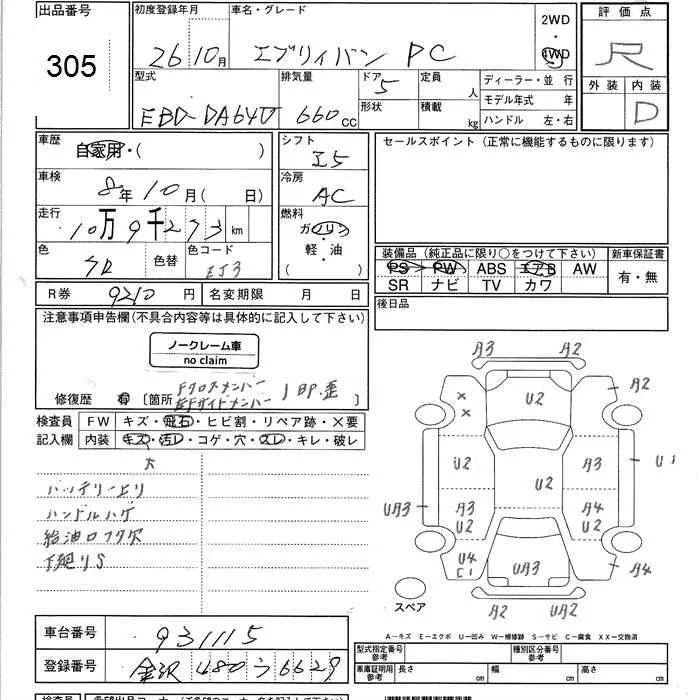 出品番号 初度登録年月 車名・グレード 2WD 評価点
305 26 10月 エブリィバン PC 4WD R
型式 排気量 ドア 5 定員 人 ディーラー・並行 外装 内装
EBD-DA64V 660 cc 形状 積載 kg モデル年式 年 D
ハンドル 左・右
車歴 自家用・( ) シフト I5 セールスポイント(正常に機能するものに限ります)
車検 8年10月( 日) 冷房 AC
走行 10万9千273 km 燃料 ガソリン
色 色替 色コード ZJ3 軽・油 ( ) 装備品(純正品に限り○をつけて下さい) 新車保証書
PS PW ABS エアB AW 有・無
R券 9210 円 名変期限 月 日 SR ナビ TV カワ
後日品
注意事項申告欄(不具合内容等は具体的に記入して下さい)
ノークレーム車
no claim
修復歴 有 [箇所 Fクロスメンバー
左Fサイドメンバー JBP.歪
検査員 FW キズ・飛石・ヒビ割・リペア跡・×要
記入欄 内装 キズ・汚レ・コゲ・穴・スレ・キレ・破レ
大
バッテリー上リ
ハンドルハゲ
給油口フタ欠
下廻りS
A3 A2
A2
U2
U2 A3 U1
U2
UA3 A3 A4
U2 U2
U4 UA3 A4
C1
A2 UA2
スペア
A-キズ E-エクボ U-凹み W-補修跡 S-サビ C-腐食 XX-交換済
車台番号 931115 型式指定番号 参考 種別区分番号 参考
登録番号 金沢 480 う 6629 車庫証明用 参考 長さ cm 幅 cm 高さ cm